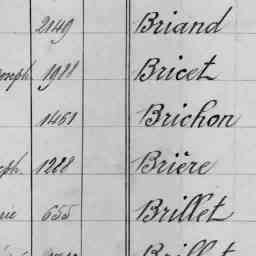 2149 Briand
1988 Bricet
1451 Brichon
1288 Brière
655 Brillet
Brillet